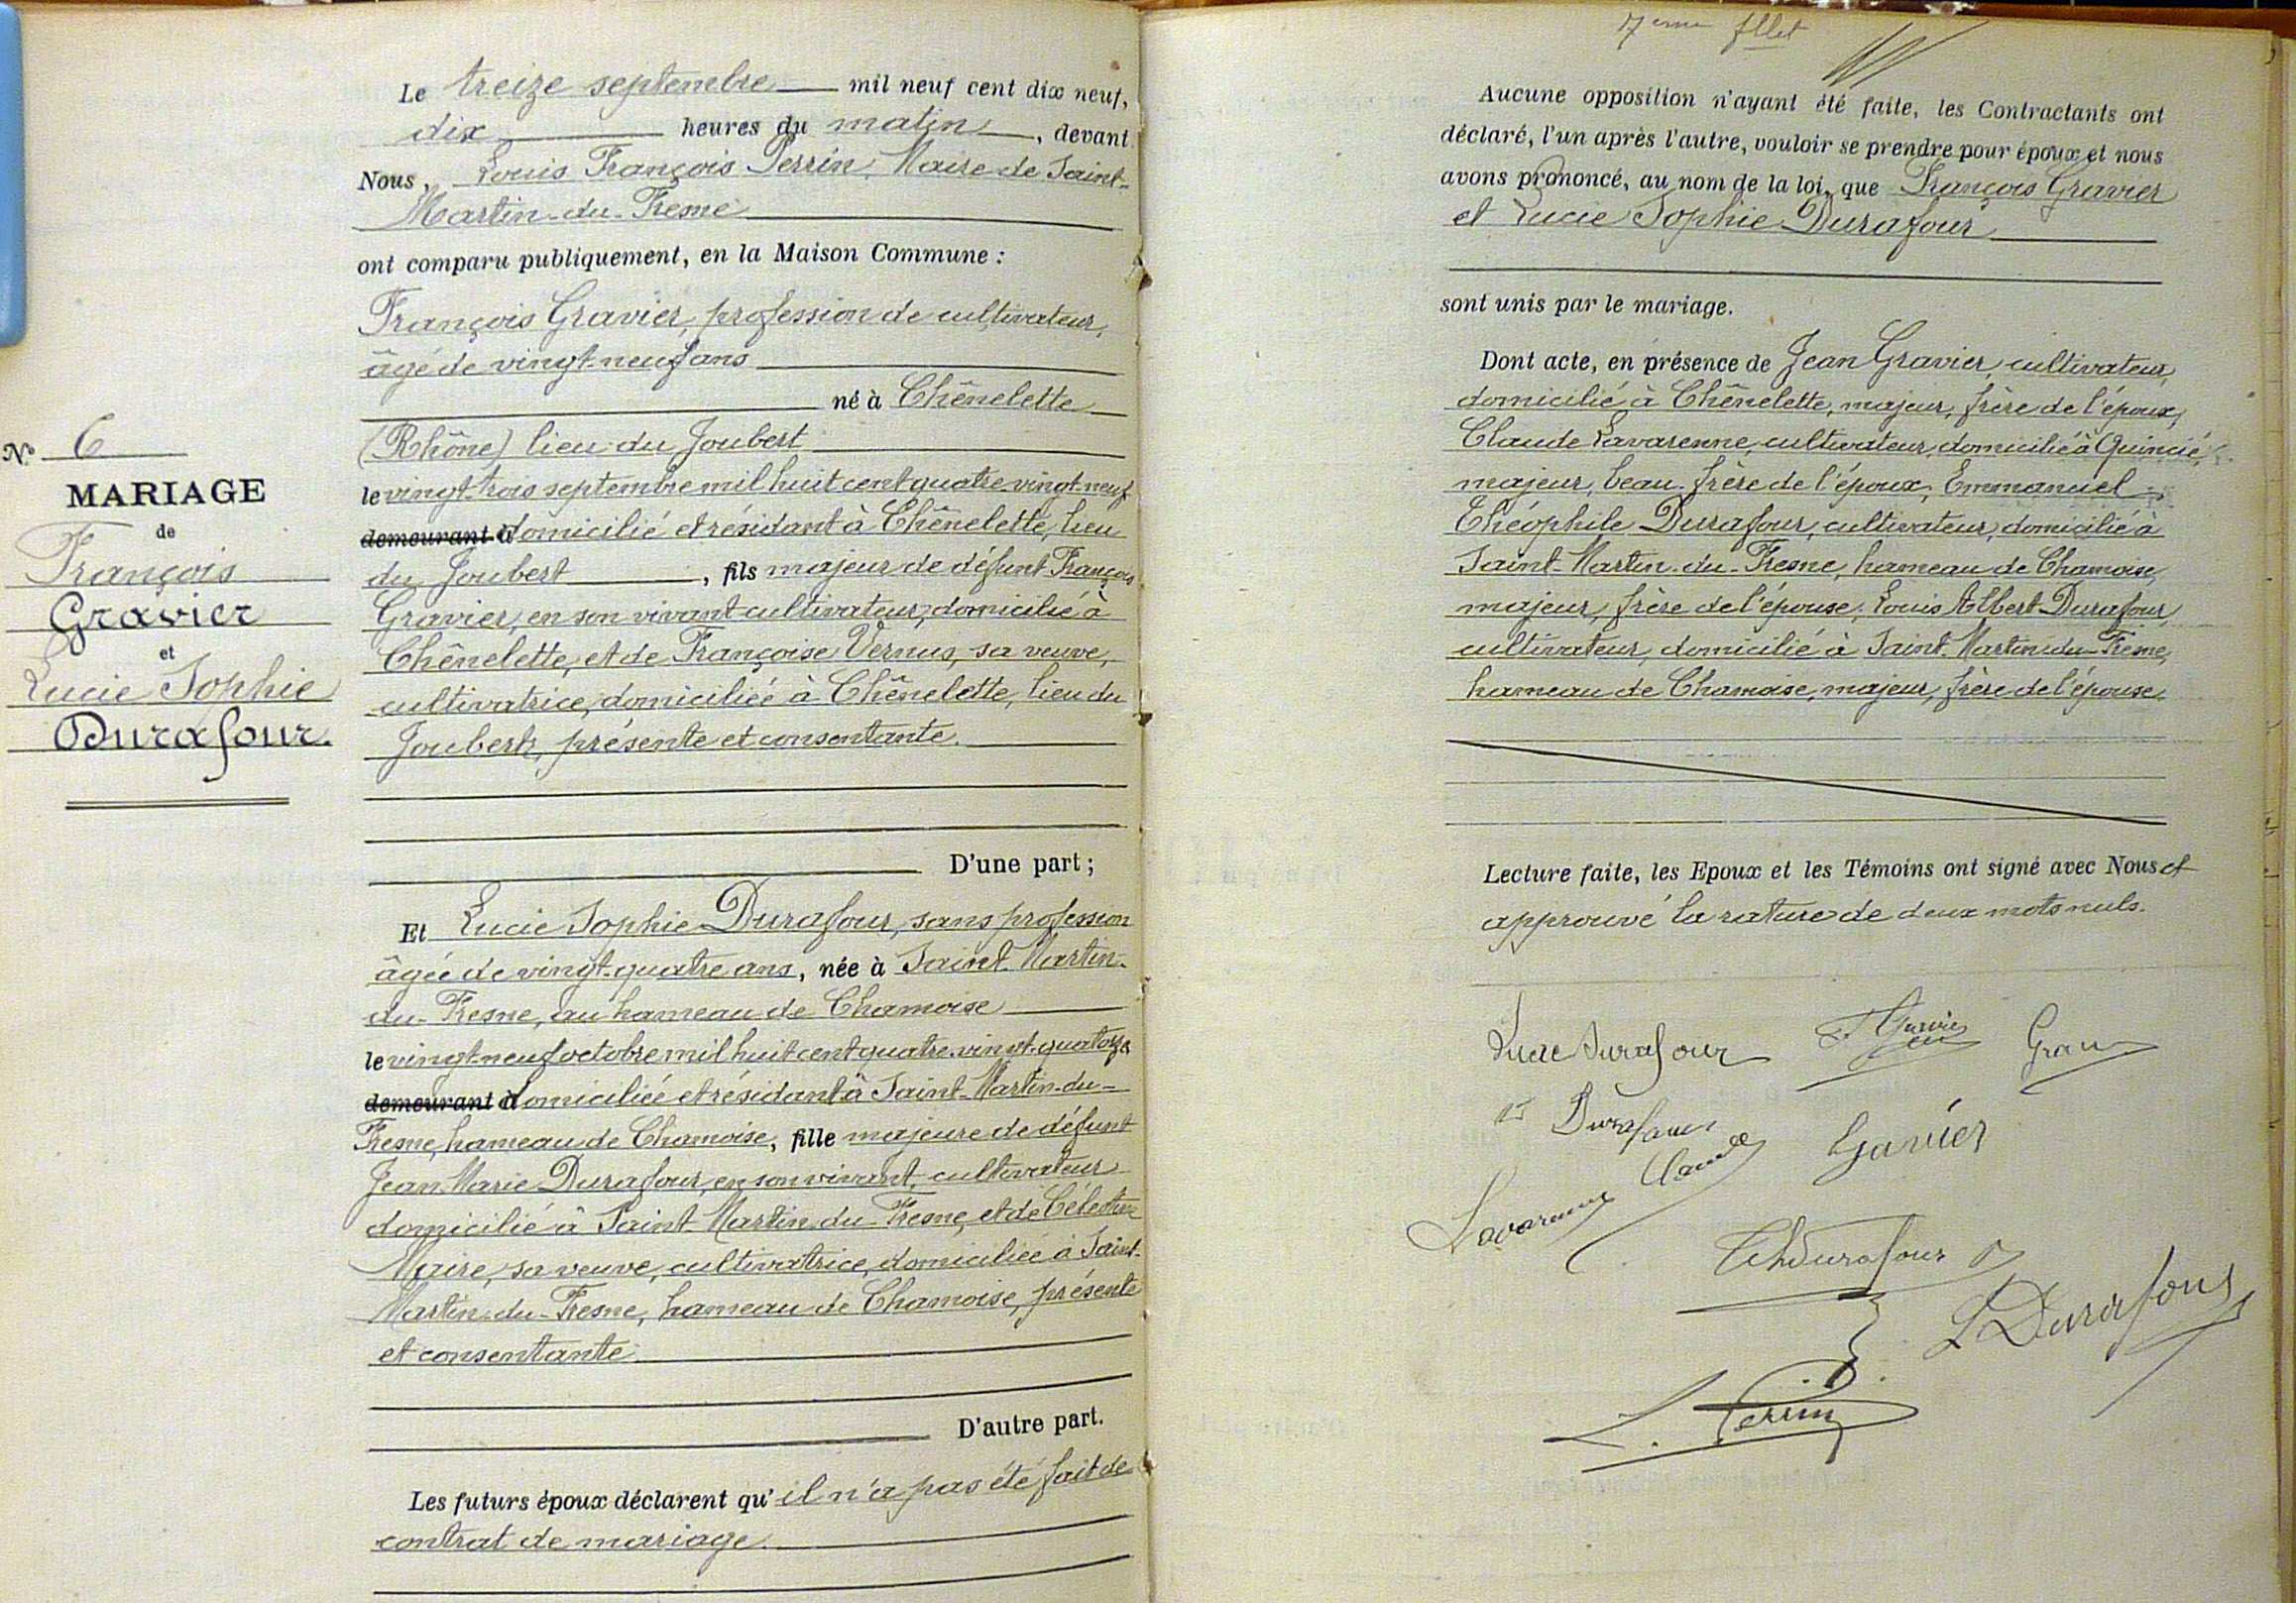 Le treize septembre mil neuf cent dix neuf,
dix heures du matin, devant
Nous, Louis François Perrin, Maire de Saint-
Martin-du-Fresne
ont comparu publiquement, en la Maison Commune :
François Gravier, profession de cultivateur,
âgé de vingt-neuf ans
né à Chênelette
(Rhône) lieu du Joubert
le vingt-trois septembre mil huit cent quatre-vingt-neuf
demourant à domicilié et résidant à Chênelette, lieu
du Joubert, fils majeur de défunt François
Gravier, en son vivant cultivateur, domicilié à
Chênelette, et de Françoise Vernus, sa veuve,
cultivatrice, domiciliée à Chênelette, lieu du
Joubert, présente et consentante.
D'une part ;
N° 6
MARIAGE
de
François
Gravier
et
Lucie Sophie
Durafour.
Et Lucie Sophie Durafour, sans profession
âgée de vingt-quatre ans, née à Saint-Martin-
du-Fresne, au hameau de Chamoise
le vingt-neuf octobre mil huit cent quatre-vingt-quatorze
demourant à domiciliée et résidant à Saint-Martin-du-
Fresne, hameau de Chamoise, fille majeure de défunt
Jean-Marie Durafour, en son vivant, cultivateur
domicilié à Saint-Martin-du-Fresne, et de Célestine
Maire, sa veuve, cultivatrice, domiciliée à Saint-
Martin-du-Fresne, hameau de Chamoise, présente
et consentante.
D'autre part.
Les futurs époux déclarent qu'il n'a pas été fait de
contrat de mariage.
Aucune opposition n'ayant été faite, les Contractants ont
déclaré, l'un après l'autre, vouloir se prendre pour époux et nous
avons prononcé, au nom de la loi, que François Gravier
et Lucie Sophie Durafour
sont unis par le mariage.
Dont acte, en présence de Jean Gravier, cultivateur,
domicilié à Chênelette, majeur, frère de l'époux,
Claude Lavarenne, cultivateur, domicilié à Quincié,
majeur, beau-frère de l'époux, Emmanuel
Théophile Durafour, cultivateur, domicilié à
Saint-Martin-du-Fresne, hameau de Chamoise,
majeur, frère de l'épouse, Louis Albert Durafour,
cultivateur, domicilié à Saint-Martin-du-Fresne,
hameau de Chamoise, majeur, frère de l'épouse.
Lecture faite, les Epoux et les Témoins ont signé avec Nous et
approuvé la rature de deux mots nuls.
Lucie Durafour
Durafour
Lavarenne Claude
Gravier
Th Durafour
L Durafour
L. Perrin